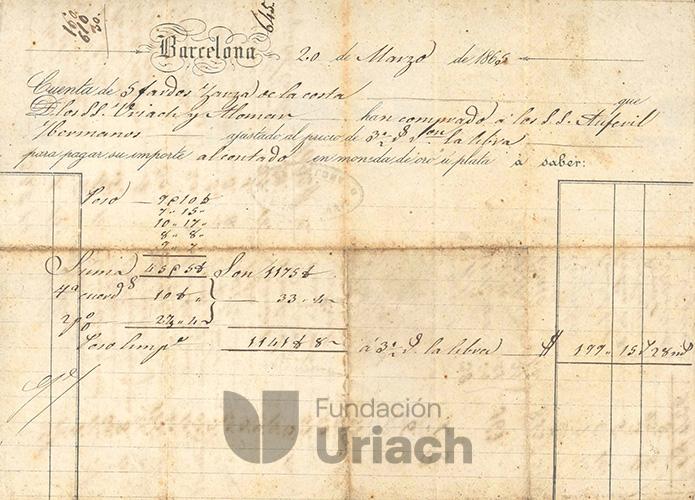 160
610
30.
645
Barcelona 20 de Marzo de 186
Cuenta de 5 fardos Zarza de la costa que
D. los SS. Uriach y Aloman han comprado á los S.S.
Hermanos ajustado al precio de la libra
para pagar su importe al contado en moneda de oro u plata á saber:
Peso 9 @ 10 ℔
7 " 15 "
10 " 17 "
8 " 8 "
Suma 45 @ 5 ℔ Son 1175 ℔
10 ℔ 33 " 4
2p%
Peso limp° 1141 ℔ 8 á la libra $ 199 " 15 28
Fundación
Uriach